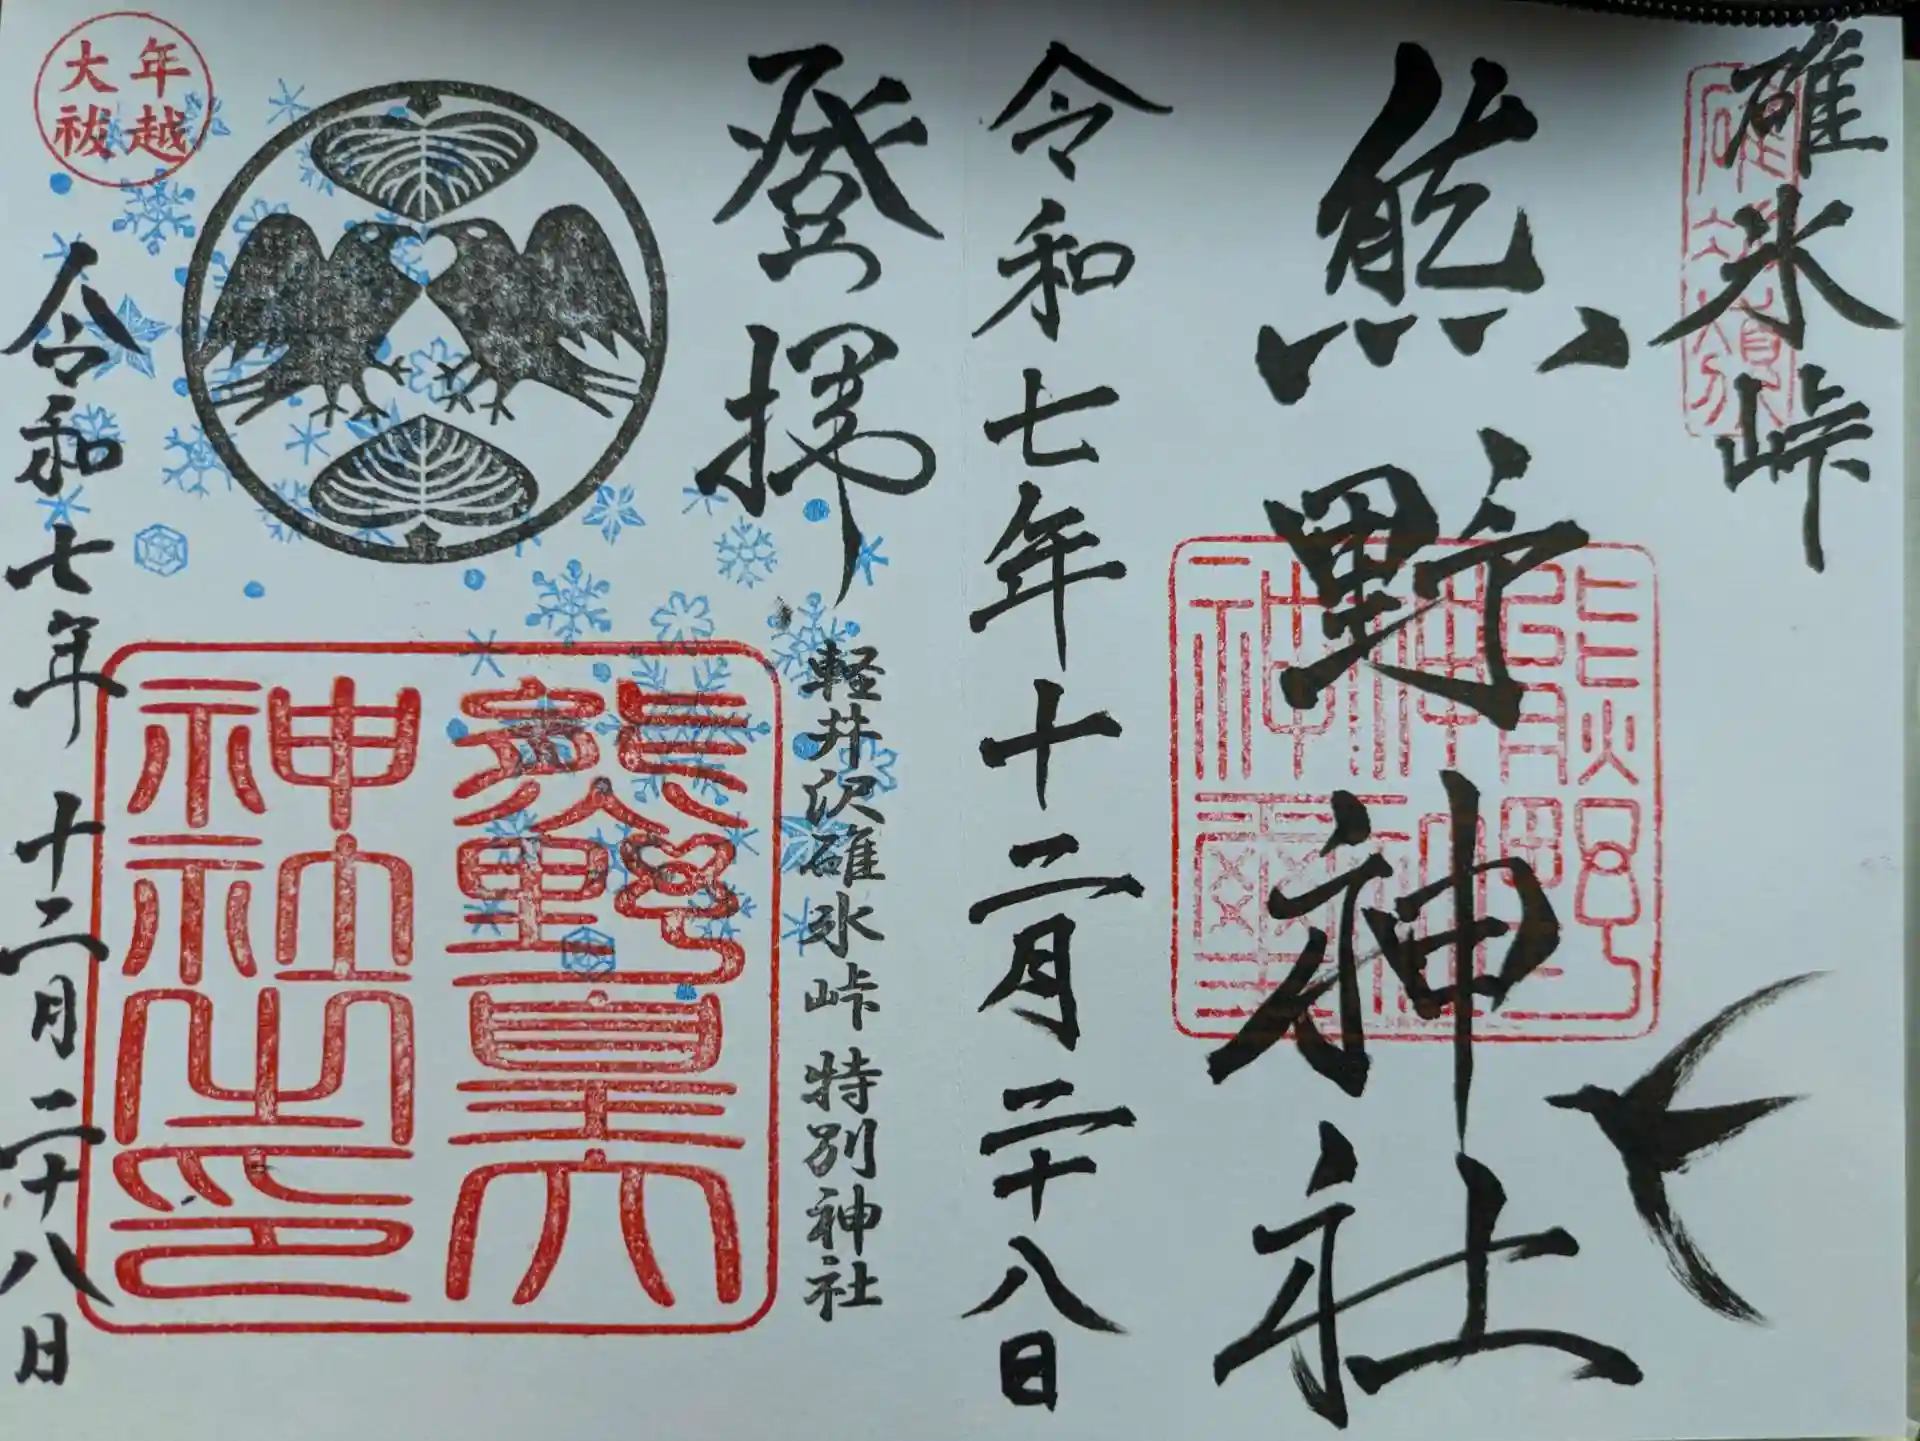 碓氷峠
熊野神社
令和七年十二月二十八日
登拝
軽井沢碓氷峠 特別神社
熊野皇大
神社之印
年越
大祓
令和七年 十二月二十八日